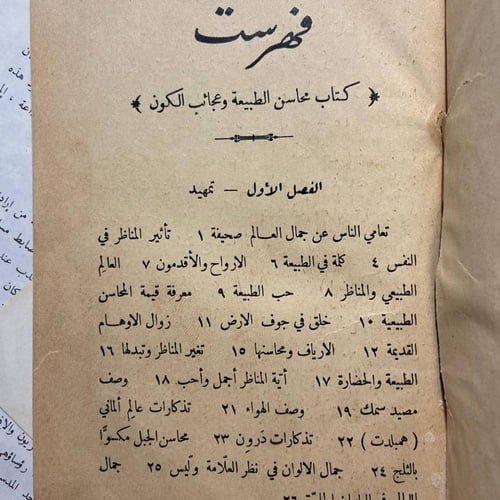 فهرست
﴿ كتاب محاسن الطبيعة وعجائب الكون ﴾
الفصل الأول — تمهيد
تعامي الناس عن جمال العالم صحيفة ١ تأثير المناظر في
النفس ٤ كلمة في الطبيعة ٦ الارواح والأقدمون ٧ العالِم
الطبيعي والمناظر ٨ حب الطبيعة ٩ معرفة قيمة المحاسن
الطبيعية ١٠ خلق في جوف الارض ١١ زوال الاوهام
القديمة ١٢ الارياف ومحاسنها ١٥ تغير المناظر وتبدلها ١٦
الطبيعة والحضارة ١٧ أيّة المناظر أجمل وأحب ١٨ وصف
مصيد سمك ١٩ وصف الهواء ٢١ تذكارات عالم ألماني
( همبلدت ) ٢٢ تذكارات درون ٢٣ محاسن الجبل مكسوًّا
بالثلج ٢٤ جمال الالوان في نظر العلّامة وُليس ٢٥ جمال